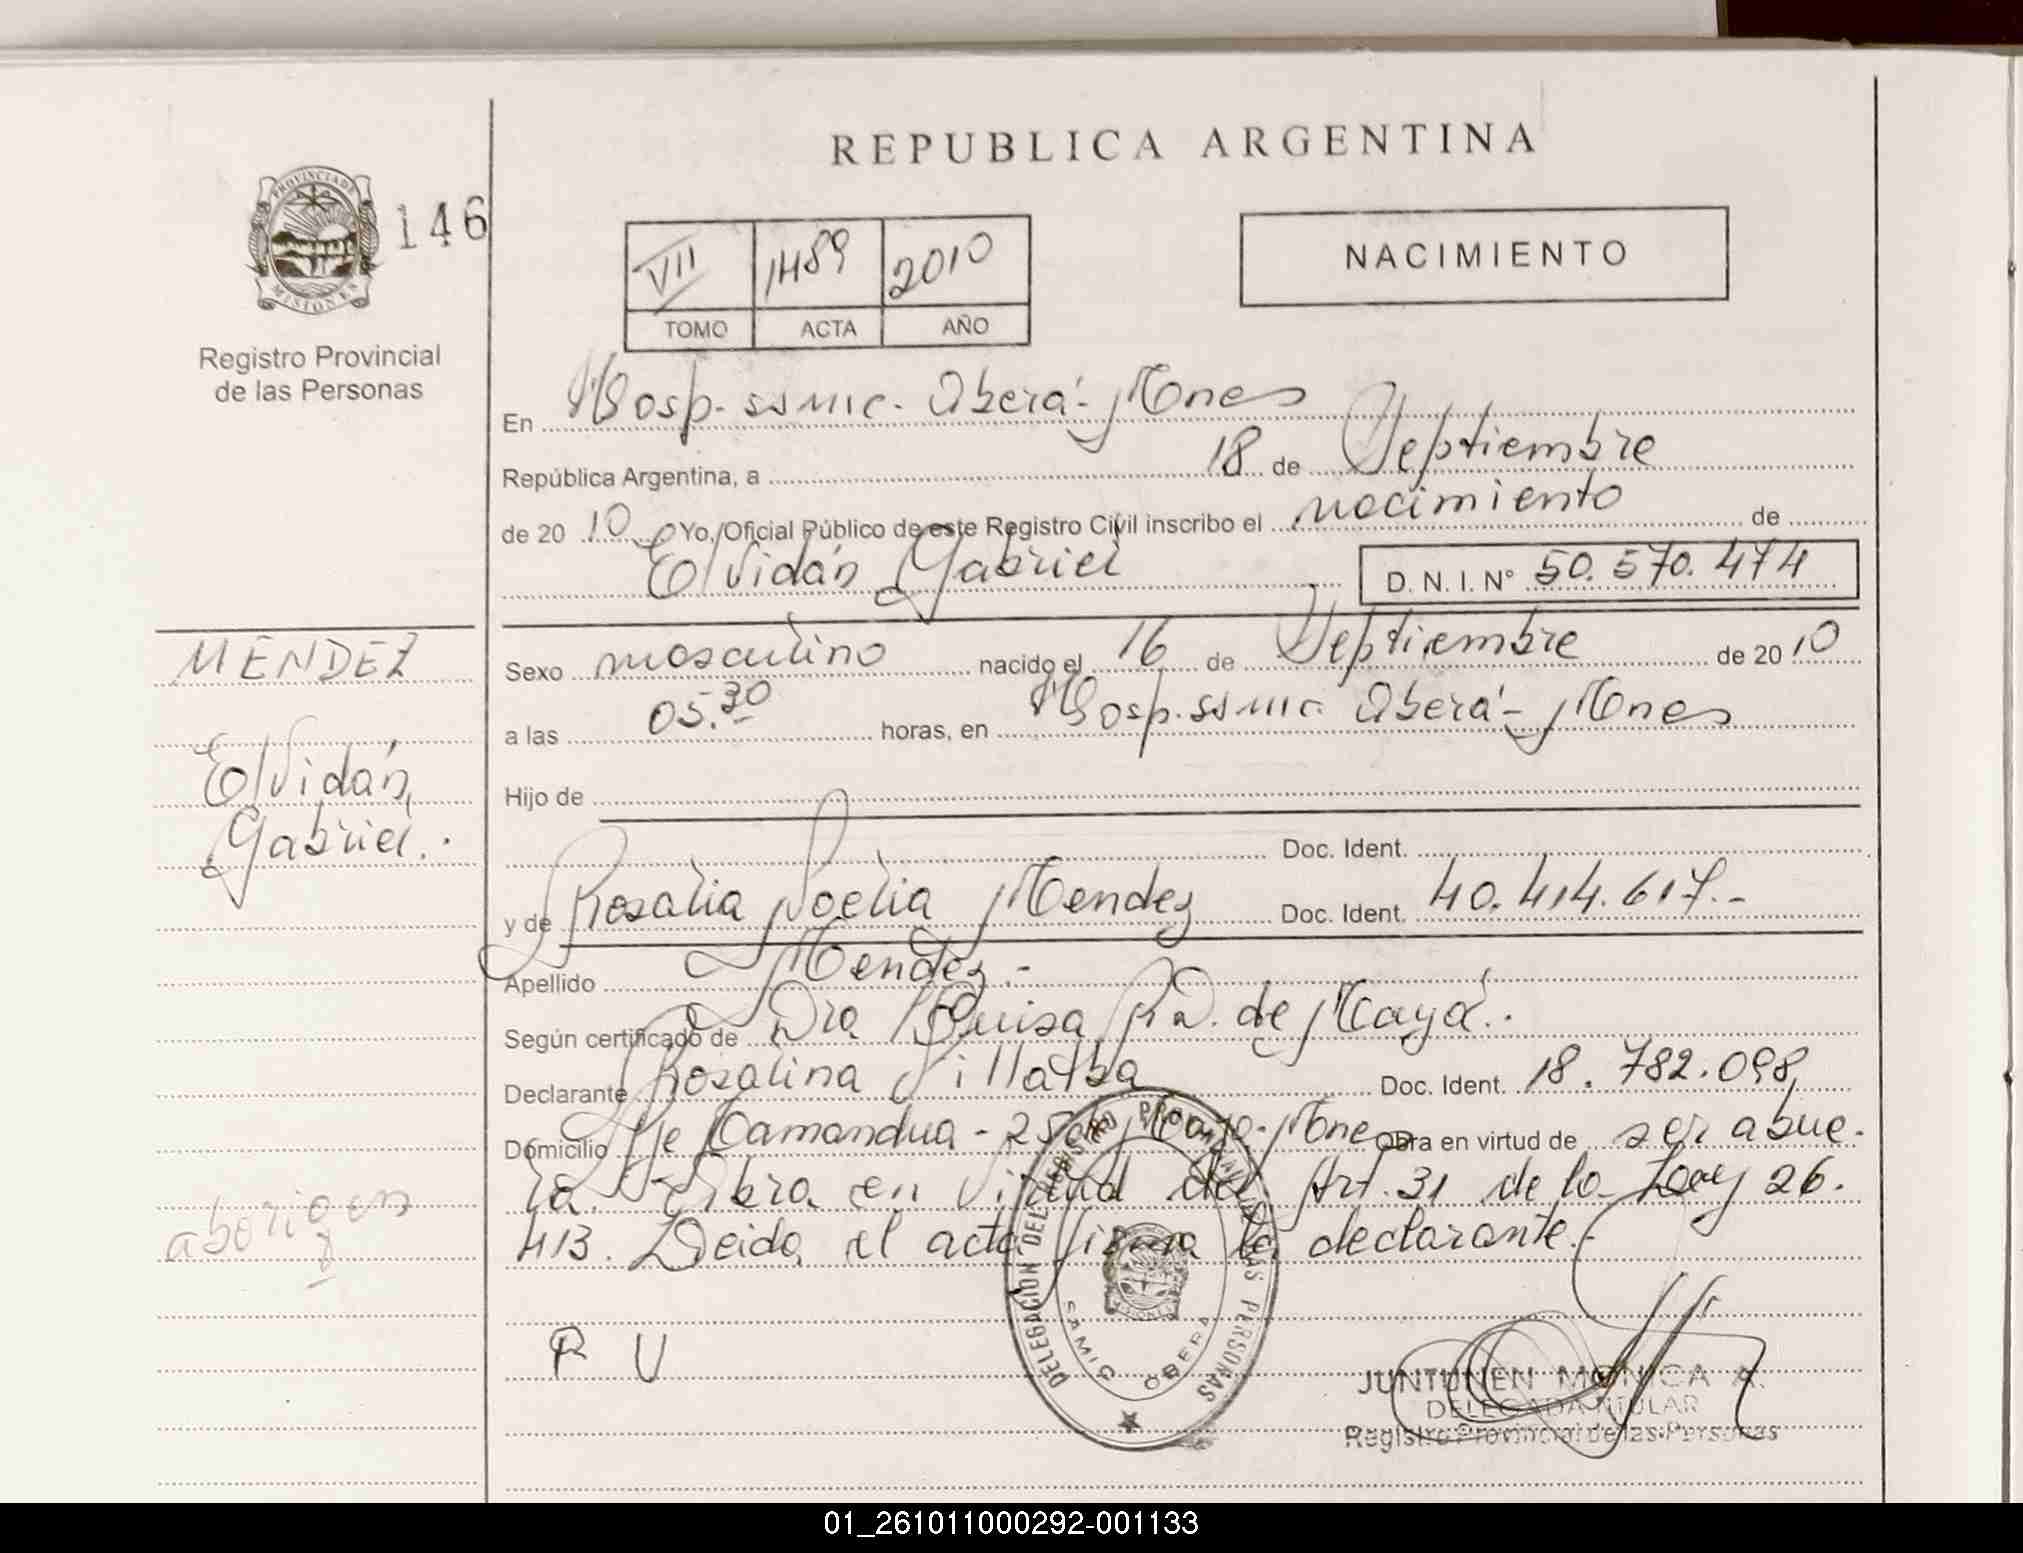 REPUBLICA ARGENTINA
PROVINCIA DE MISIONES
146
VII 1489 2010
TOMO ACTA AÑO
NACIMIENTO
Registro Provincial
de las Personas
En Hosp. ssmic. Oberá - Mnes
República Argentina, a 18 de Septiembre
de 20 10 Yo, Oficial Público de este Registro Civil inscribo el nacimiento de
Elvidán Gabriel D. N. I. N° 50.570.474
MENDEZ
Elvidán
Gabriel.
Sexo masculino nacido el 16 de Septiembre de 20 10
a las 05.30 horas, en Hosp. ssmic. Oberá - Mnes
Hijo de
Doc. Ident.
y de Rosalia Noelia Mendez Doc. Ident. 40.414.617.-
Apellido Mendez.-
Según certificado de Dra Luisa de Mayá.
Declarante Rosalina Villalba Doc. Ident. 18.782.098
Domicilio Je Kamandua - 25 de Mayo - Mnes Obra en virtud de ser abue-
la. Obra en virtud del Art. 31 de la Ley 26.
413. Leida el acta firma la declarante.-
aborigen
R V
DELEGACIÓN DEL REGISTRO PROVINCIAL DE LAS PERSONAS
SAMIC OBERA
JUNTUNEN MONICA A.
DELEGADA TITULAR
Registro Provincial de las Personas
01_261011000292-001133